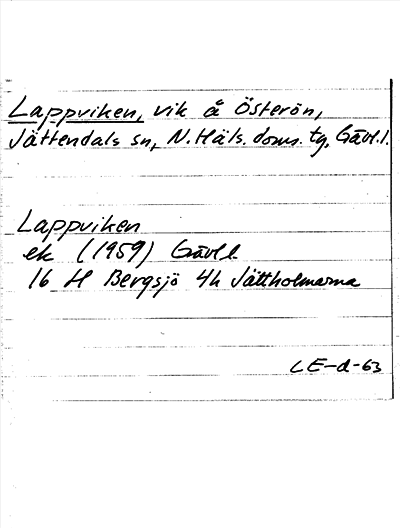 Lappviken, vik å Österön,
Jättendals sn, N. Häls. doms. tg, Gävl.l.
Lappviken
ek (1959) Gävl.l
16 H Bergsjö 4h Jättholmarna
LE-d-63